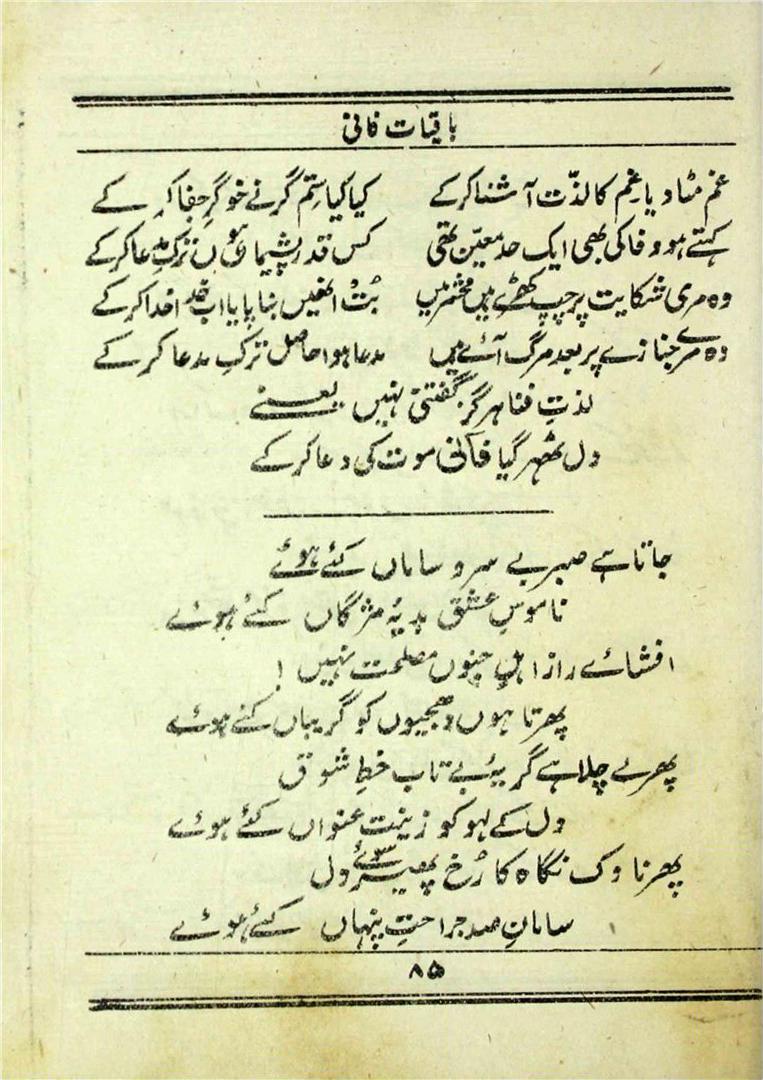 باقیات فانی
غم مٹا دیا غم کا لذّت آشنا کر کے کیا کیا ستم گر نے خوگرِ جفا کر کے
کہتے ہو وفا کی بھی ایک حد معیّن تھی کس قدر پشیماں ہوں ترکِ مدعا کر کے
وہ مری شکایت پر چپ کھڑے ہیں محشر میں بُت انھیں بنا پایا اب خدا خدا کر کے
وہ مرے جنازے پر بعد مرگ آئے ہیں مدعا ہوا حاصل ترکِ مدعا کر کے
لذتِ فنا ہرگز گفتنی نہیں یعنے
دل ٹھہر گیا فانی موت کی دعا کر کے
جاتا ہے صبر بے سر و ساماں کئے ہوئے
ناموسِ عشق ہدیۂ مژگاں کئے ہوئے
افشائے راز اہلِ جنوں مصلحت نہیں !
پھرتا ہوں دھجیوں کو گریباں کئے ہوئے
پھر لے چلا ہے گریۂ بے تاب خطِ شوق
دل کے لہو کو زینت عنواں کئے ہوئے
پھر ناوک نگاہ کا رُخ پھیر سوئے دل
سامانِ صد جراحتِ پنہاں کئے ہوئے
۸۵